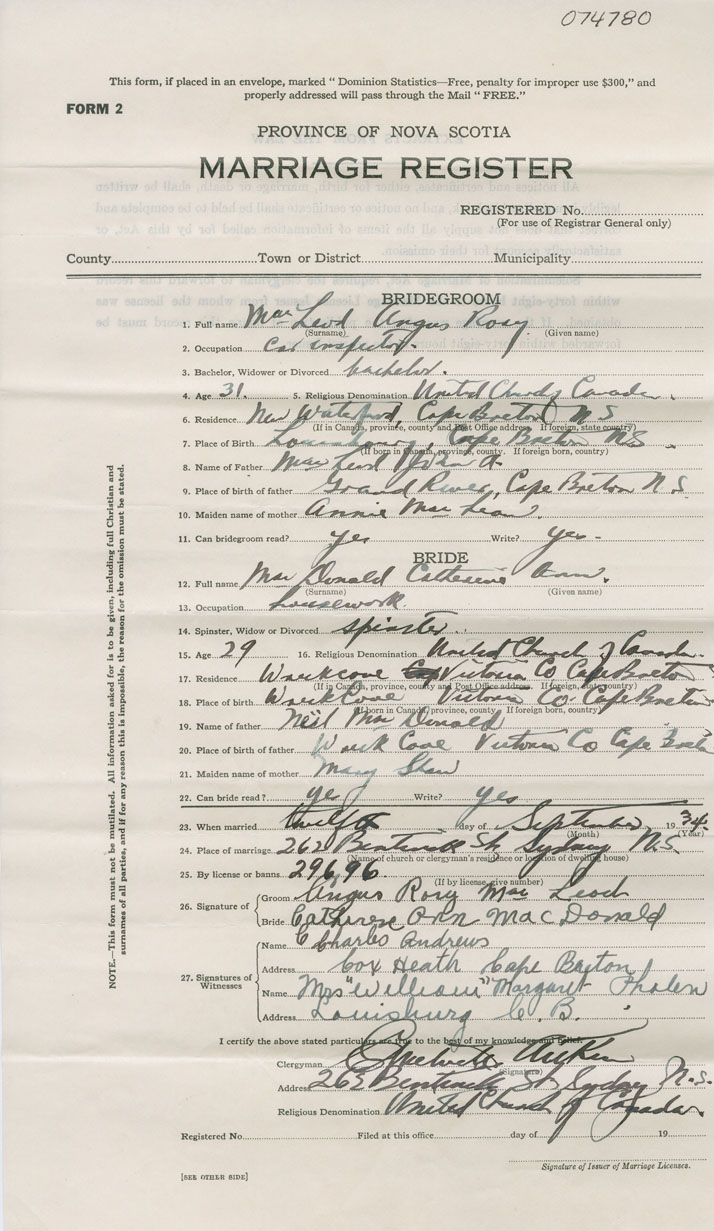 074780
This form, if placed in an envelope, marked “ Dominion Statistics—Free, penalty for improper use $300,” and
properly addressed will pass through the Mail “ FREE.”
FORM 2
PROVINCE OF NOVA SCOTIA
MARRIAGE REGISTER
REGISTERED No.
(For use of Registrar General only)
County Town or District Municipality
BRIDEGROOM
1. Full name Mac Leod Angus Rory
(Surname) (Given name)
2. Occupation Car inspector.
3. Bachelor, Widower or Divorced bachelor.
4. Age 31. 5. Religious Denomination United Church Canada.
6. Residence New Waterford, Cape Breton N S
(If in Canada, province, county and Post Office address. If foreign, state country)
7. Place of Birth Louisbourg, Cape Breton N S
(If born in Canada, province, county. If foreign born, country)
8. Name of Father Mac Leod John
9. Place of birth of father Grand River, Cape Breton N S
10. Maiden name of mother Annie Mac Lean.
11. Can bridegroom read? yes Write? yes -
BRIDE
12. Full name Mac Donald Catherine Ann.
(Surname) (Given name)
13. Occupation housework.
14. Spinster, Widow or Divorced spinster.
15. Age 29 16. Religious Denomination United Church of Canada.
17. Residence Wreckcove Victoria Co Cape Breton
(If in Canada, province, county and Post Office address. If foreign, state country)
18. Place of birth Wreck Cove Victoria Co. Cape Breton
(If born in Canada, province, county. If foreign born, country)
19. Name of father Neil Mac Donald
20. Place of birth of father Wreck Cove Victoria Co Cape Breton
21. Maiden name of mother Mary Shaw
22. Can bride read? yes Write? yes
23. When married twelfth day of September 1934.
(Month) (Year)
24. Place of marriage 262 Bentinck St, Sydney N.S.
(Name of church or clergyman's residence or location of dwelling house)
25. By license or banns. 29696
(If by license, give number)
26. Signature of
Groom Angus Rory Mac Leod
Bride Catherine Ann MacDonald
27. Signatures of Witnesses
Name Charles Andrews
Address Cox Heath Cape Breton
Name Mrs "William" Margaret Phalen
Address Louisburg C. B.
I certify the above stated particulars are true to the best of my knowledge and belief.
Clergyman Aitken
(Signature)
Address 265 Bentinck St, Sydney N.S.
Religious Denomination United Church of Canada.
Registered No. Filed at this office day of 19
Signature of Issuer of Marriage Licenses.
[SEE OTHER SIDE]
NOTE.—This form must not be mutilated. All information asked for is to be given, including full Christian and
surnames of all parties, and if for any reason this is impossible, the reason for the omission must be stated.